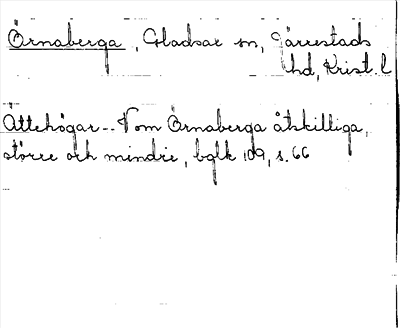 Örnaberga, Gladsax sn, Järrestads
hd, Krist. l
Ättehögar.- V om Örnaberga åtskilliga,
större och mindre, bglk 109, s. 66